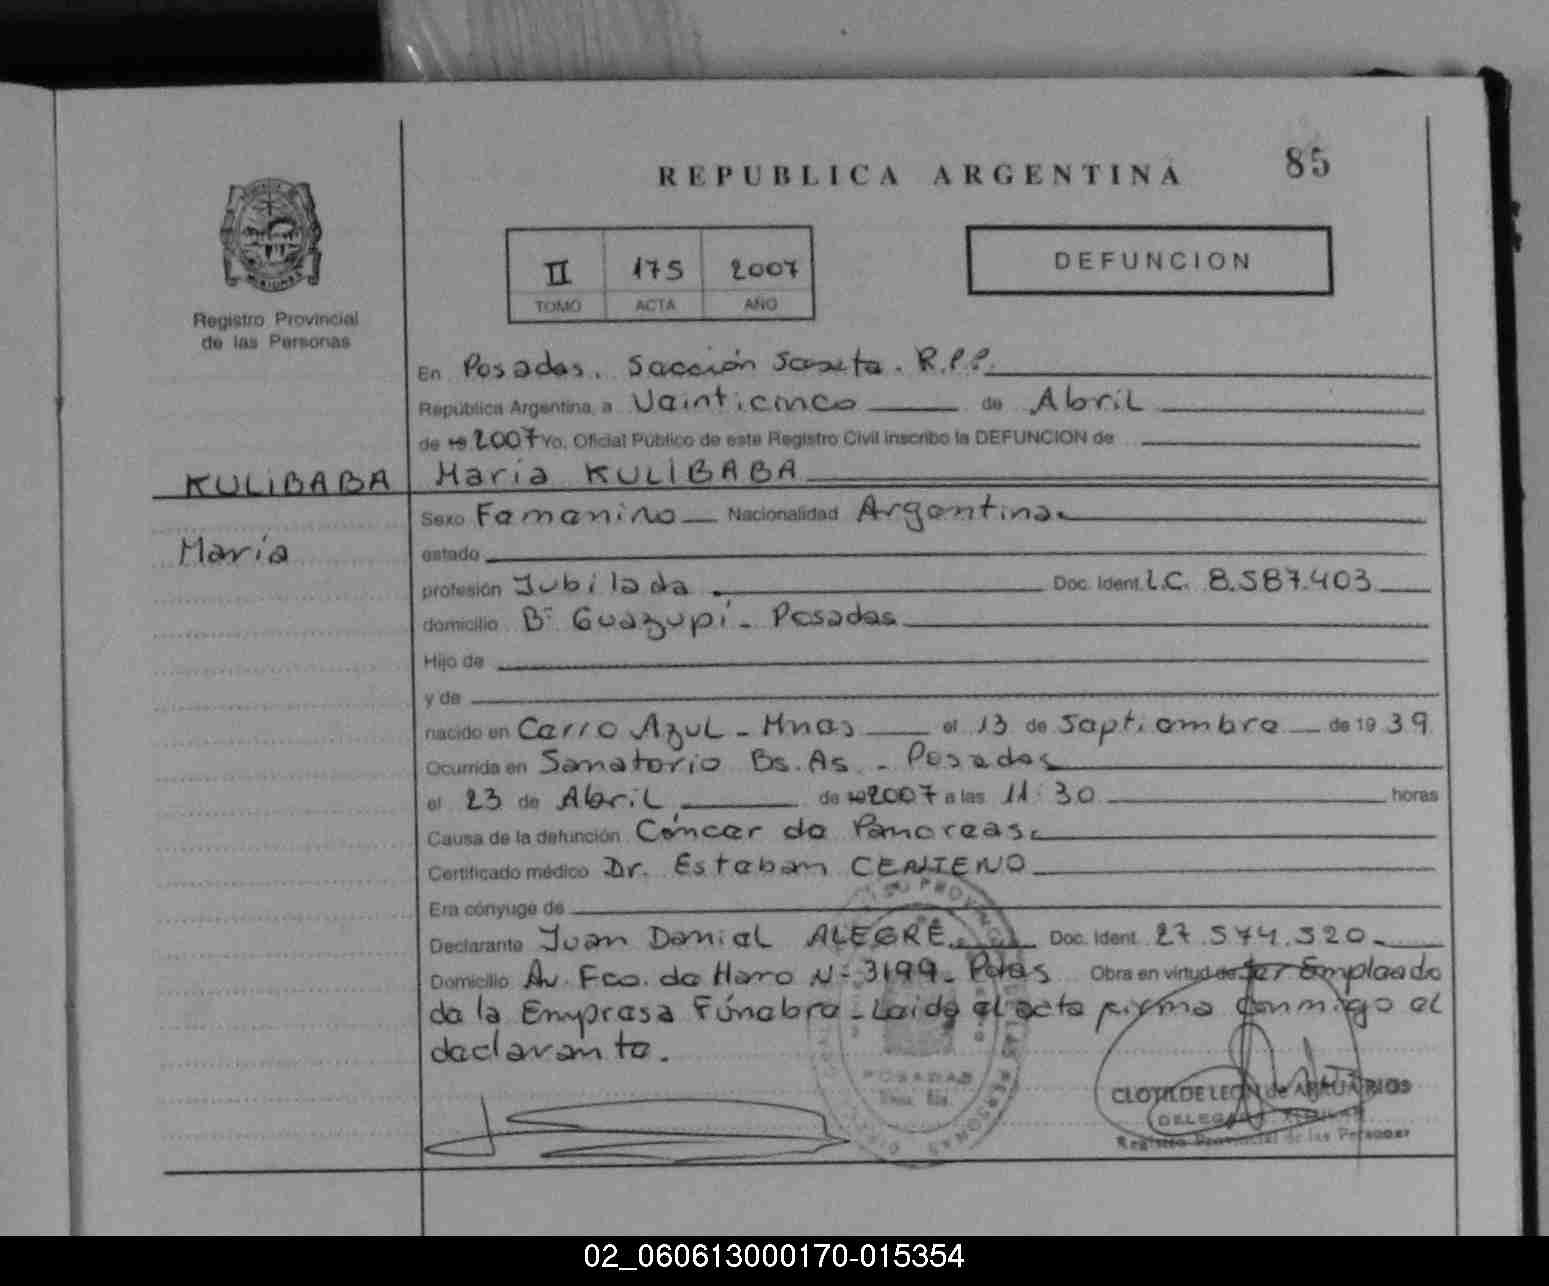 REPUBLICA ARGENTINA
85
II 175 2007
TOMO ACTA AÑO
DEFUNCION
MISIONES
Registro Provincial
de las Personas
En Posadas. Sección Sexta. R.P.P.
República Argentina, a Veinticinco de Abril
de 19 2007 Yo, Oficial Público de este Registro Civil inscribo la DEFUNCION de
KULIBABA María KULIBABA
Sexo Femenino Nacionalidad Argentina.
María
estado
profesión Jubilada. Doc. Ident. L.C. 8.587.403
domicilio Bº Guazupí - Posadas
Hijo de
y de
nacido en Cerro Azul - Mnes el 13 de Septiembre de 1939
Ocurrida en Sanatorio Bs. As. - Posadas
el 23 de Abril de 19 2007 a las 11:30 horas
Causa de la defunción Cáncer de Pancreas.
Certificado médico Dr. Esteban CENTENO
Era cónyuge de
Declarante Juan Daniel ALEGRE. Doc. Ident. 27.574.520.
Domicilio Av. Fco. de Haro Nº 3199 - Pdas Obra en virtud de Ser Empleado
de la Empresa Fúnebre - Leida el acta firma conmigo el
declarante.
POSADAS
CLOTILDE LEON de
Registro Provincial de las Personas
02_060613000170-015354